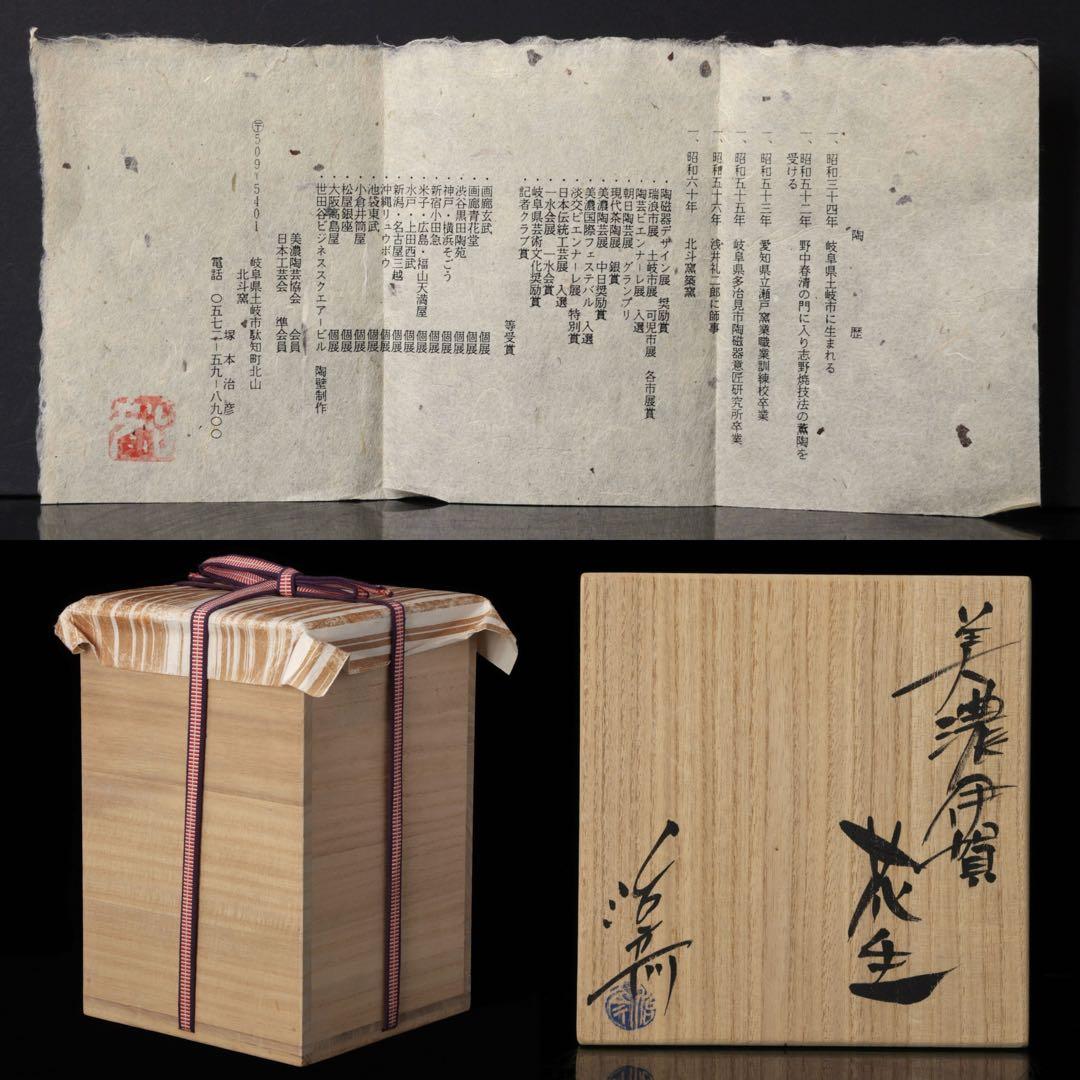 陶歴
一、昭和三十四年 岐阜県土岐市に生まれる
一、昭和五十二年 野中春清の門に入り志野焼技法の薫陶を
受ける
一、昭和五十三年 愛知県立瀬戸窯業職業訓練校卒業
一、昭和五十五年 岐阜県多治見市陶磁器意匠研究所卒業
一、昭和五十六年 浅井礼二郎に師事
一、昭和六十年 北斗窯築窯
・陶磁器デザイン展 奨励賞
・瑞浪市展、土岐市展、可児市展 各市展賞
・陶芸ビエンナーレ展 入選
・朝日陶芸展 グランプリ
・現代茶陶展 銀賞
・美濃陶芸展 中日奨励賞
・美濃国際フェステバル 入選
・淡交ビエンナーレ展 特別賞
・日本伝統工芸展 入選
・一水会展 一水会賞
・岐阜県芸術文化奨励賞
・記者クラブ賞
等受賞
・画廊玄武 個展
・画廊青花堂 個展
・渋谷黒田陶苑 個展
・神戸・横浜そごう 個展
・新宿小田急 個展
・米子・広島・福山天満屋 個展
・水戸・上田西武 個展
・新潟・名古屋三越 個展
・沖縄リュウボウ 個展
・池袋東武 個展
・小倉井筒屋 個展
・松屋銀座 個展
・大阪高島屋 個展
・世田谷ビジネススクエアービル 陶壁制作
美濃陶芸協会 会員
日本工芸会 準会員
〒509-5401 岐阜県土岐市駄知町北山
北斗窯 塚本治彦
電話 〇五七二-五九-八九〇〇
美濃伊賀
花生
治彦